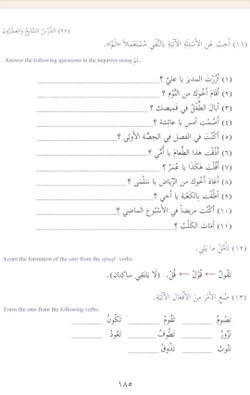 (٢٧) الدَّرْسُ السَّابِعُ وَالْعِشْرُونَ
(١١) أَجِبْ عَنِ الْأَسْئِلَةِ الْآتِيَةِ بِالنَّفْيِ مُسْتَعْمِلاً «لَمْ».
Answer the following questions in the negative using لَمْ.
(١) أَزُرْتَ المديرَ يا عليُّ ؟
(٢) أَقَامَ أَخُوكَ من النَّوْمِ ؟
(٣) أَبَالَ الطِّفْلُ في قَمِيصِكَ ؟
(٤) أَصُمْتِ أمسِ يا عائشةُ ؟
(٥) أَكُنْتَ في الفصل في الحِصَّة الأُولى ؟
(٦) أَذُقْتِ هذا الطَّعامَ يا أُمِّي ؟
(٧) أَقُلْتَ هكَذَا يا عُمَرُ ؟
(٨) أَعَادَ أَخوكِ من الرِّياضِ يا سَلْمَى ؟
(٩) أَطُفْتَ بِالكَعْبَةِ يا أَخي ؟
(١٠) أَكُنْتَ مريضاً في الأُسْبُوعِ الماضِي ؟
(١١) أَمَاتَ الكَلْبُ ؟
(١٢) تَأَمَّلْ مَا يَلِي.
Learn the formation of the amr from the ajwaf verbs.
تَقُولُ ← قُوْلْ ← قُلْ. (لَا يَلْتَقِي سَاكِنَانِ).
(١٣) صُغِ الأَمْرَ مِنَ الأَفْعَالِ الآتِيَةِ.
Form the amr from the following verbs.
تَصُومُ تَقُومُ تَكُونُ
تَزُورُ تَطُوفُ تَعُودُ
تَتُوبُ تَذُوقُ
١٨٥